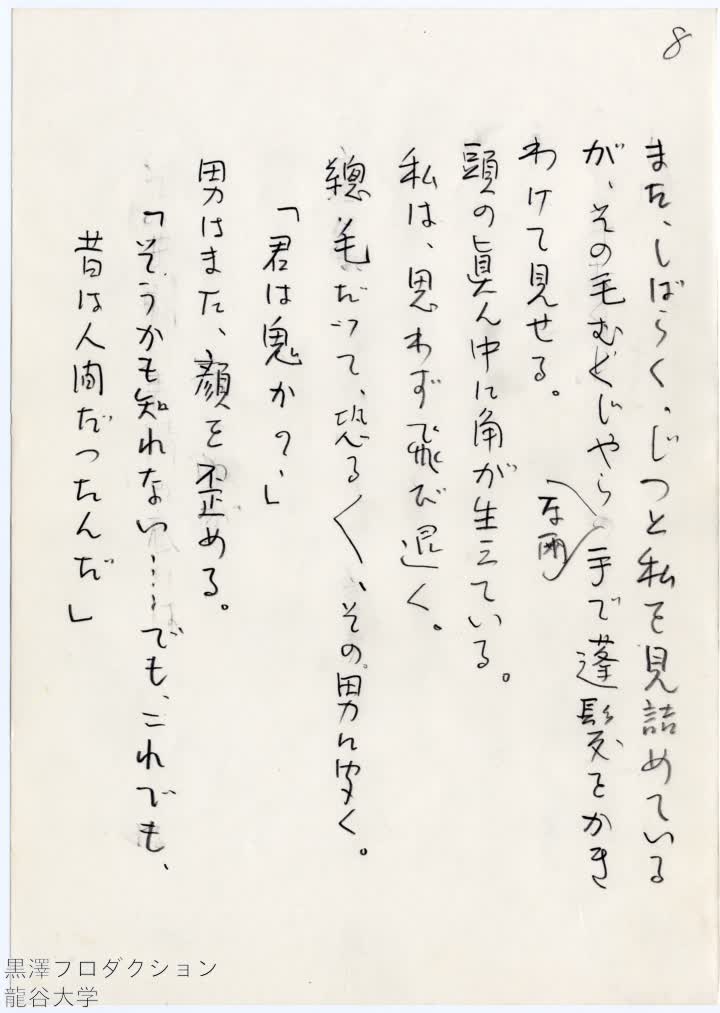 8
また、しばらく、じつと私を見詰めている
が、その毛むくじやらな両手で蓬髪をかき
わけて見せる。
頭の眞ん中に角が生えている。
私は、思わず飛び退く。
總毛だつて、恐る〱、その男に聞く。
「君は鬼か?」
男はまた、顔を歪める。
「そうかも知れない……でも、これでも、
昔は人間だつたんだ」
黒澤プロダクション
龍谷大学